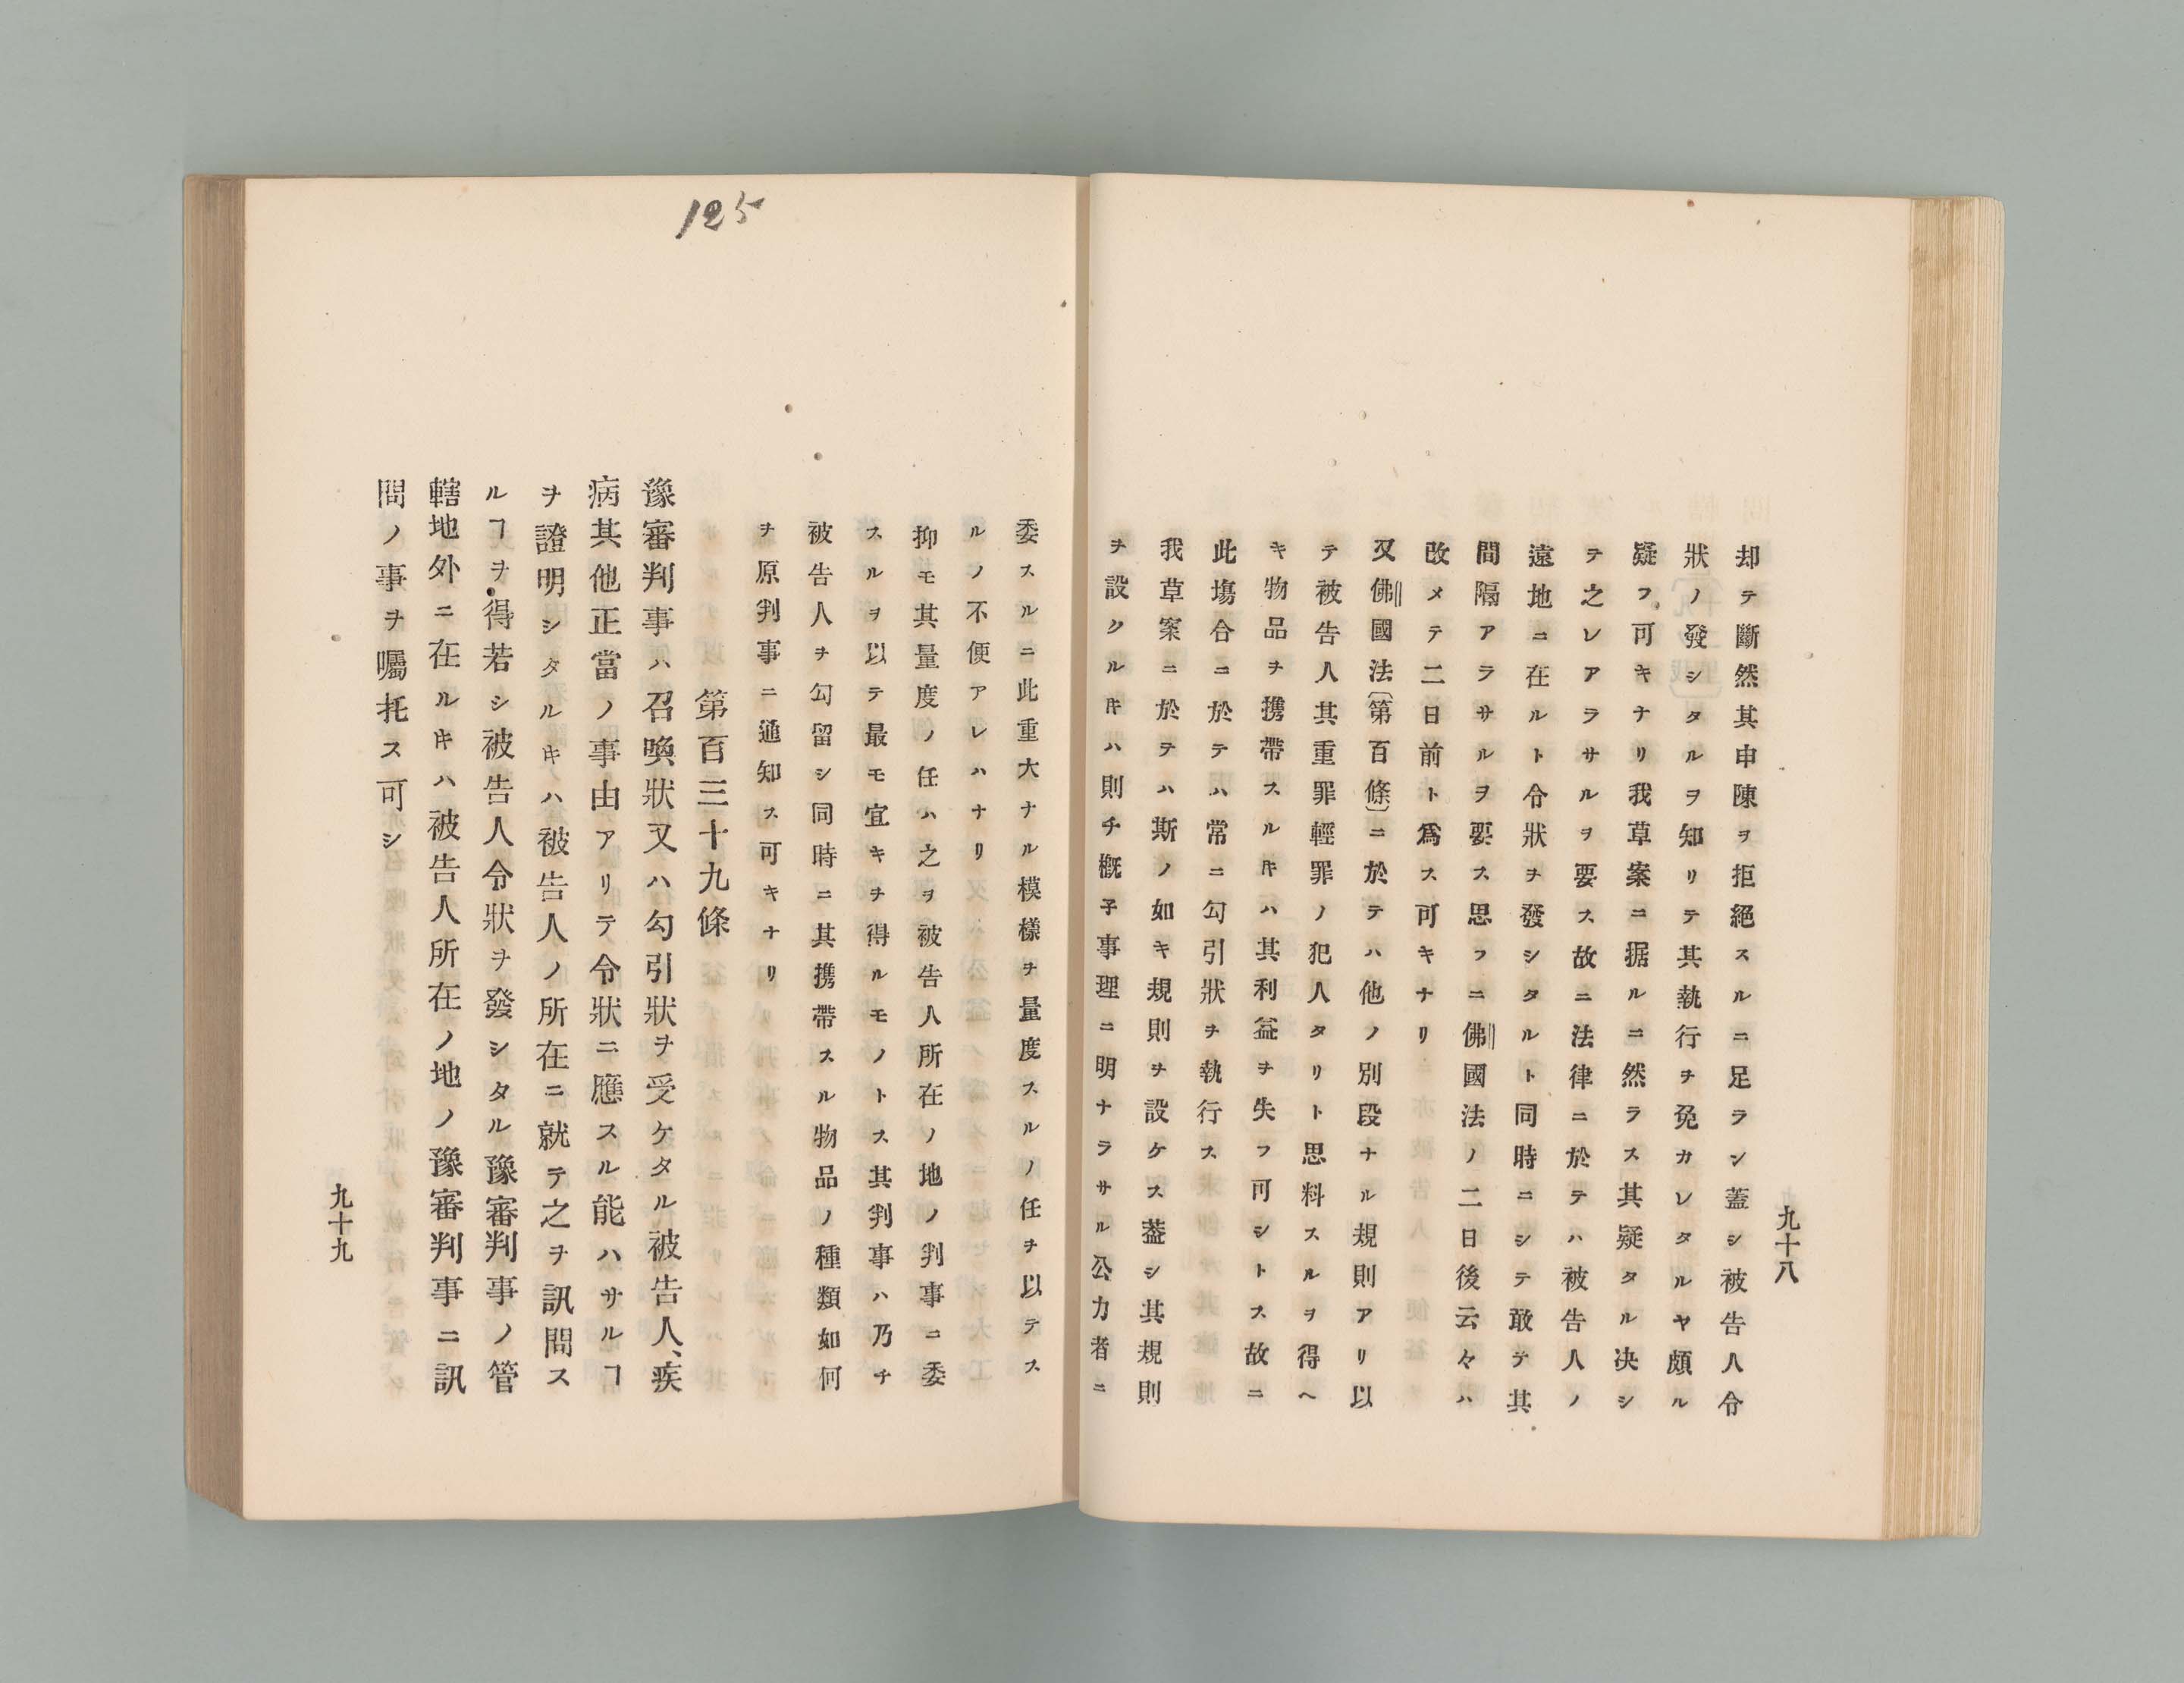 九十八
却テ斷然其申陳ヲ拒絕スルニ足ラン蓋シ被告人令
狀ノ發シタルヲ知リテ其執行ヲ免カレタルヤ頗ル
疑フ可キナリ我草案ニ据ルニ然ラス其疑タル决シ
テ之レアラサルヲ要ス故ニ法律ニ於テハ被告人ノ
遠地ニ在ルト令狀ヲ發シタルト同時ニシテ敢テ其
間隔アラサルヲ要ス思フニ佛國法ノ二日後云々ハ
改メテ二日前ト爲ス可キナリ
又佛國法〔第百條〕ニ於テハ他ノ別段ナル規則アリ以
テ被告人其重罪輕罪ノ犯人タリト思料スルヲ得ヘ
キ物品ヲ携帶スルキハ其利益ヲ失フ可シトス故ニ
此塲合ニ於テハ常ニ勾引狀ヲ執行ス
我草案ニ於テハ斯ノ如キ規則ヲ設ケス葢シ其規則
ヲ設クルキハ則チ概子事理ニ明ナラサル公力者ニ
125
委スルニ此重大ナル模樣ヲ量度スルノ任ヲ以テス
ルノ不便アレハナリ
抑モ其量度ノ任ハ之ヲ被告人所在ノ地ノ判事ニ委
スルヲ以テ最モ宜キヲ得ルモノトス其判事ハ乃チ
被告人ヲ勾留シ同時ニ其携帶スル物品ノ種類如何
ヲ原判事ニ通知ス可キナリ
第百三十九條
豫審判事ハ召喚狀又ハ勾引狀ヲ受ケタル被告人、疾
病其他正當ノ事由アリテ令狀ニ應スル能ハサルヿ
ヲ證明シタルキハ被告人ノ所在ニ就テ之ヲ訊問ス
ルヿヲ得若シ被告人令狀ヲ發シタル豫審判事ノ管
轄地外ニ在ルキハ被告人所在ノ地ノ豫審判事ニ訊
問ノ事ヲ囑托ス可シ
九十九